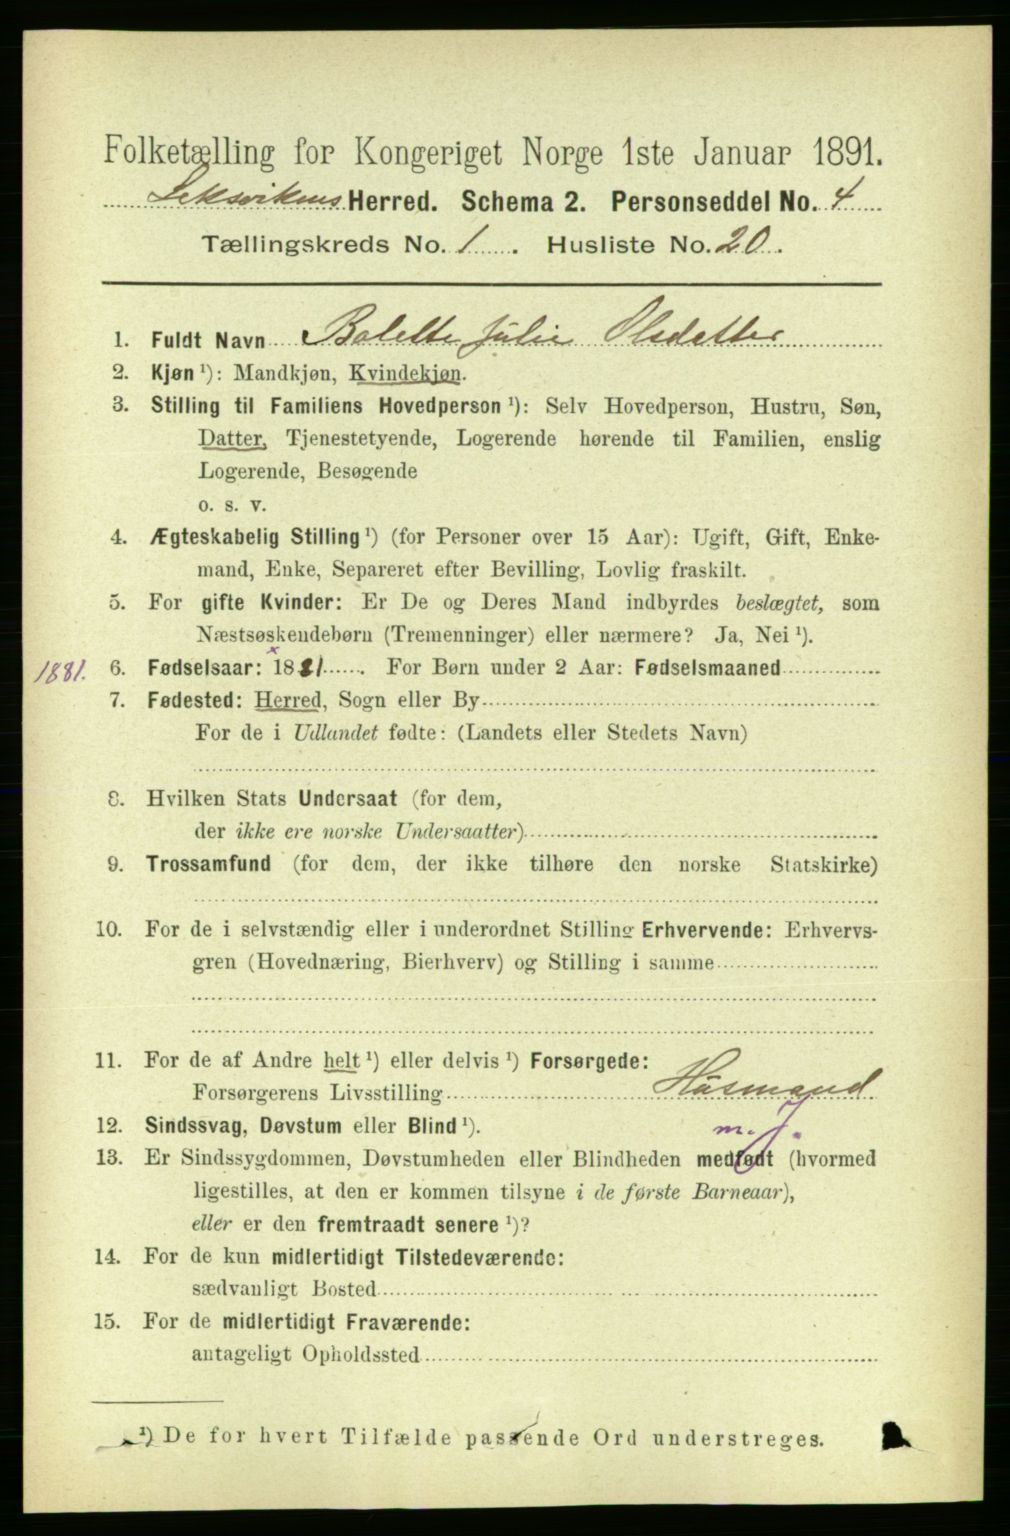 Folketælling for Kongeriget Norge 1ste Januar 1891.
Leksvikens Herred. Schema 2. Personseddel No. 4
Tællingskreds No. 1. Husliste No. 20.
1. Fuldt Navn Bolette Julie Olsdatter
2. Kjøn ¹): Mandkjøn, Kvindekjøn.
3. Stilling til Familiens Hovedperson ¹): Selv Hovedperson, Hustru, Søn,
Datter, Tjenestetyende, Logerende hørende til Familien, enslig
Logerende, Besøgende
o. s. v.
4. Ægteskabelig Stilling ¹) (for Personer over 15 Aar): Ugift, Gift, Enke-
mand, Enke, Separeret efter Bevilling, Lovlig fraskilt.
5. For gifte Kvinder: Er De og Deres Mand indbyrdes beslægtet, som
Næstsøskendebørn (Tremenninger) eller nærmere? Ja, Nei ¹).
1881. 6. Fødselsaar: 1881. For Børn under 2 Aar: Fødselsmaaned
7. Fødested: Herred, Sogn eller By
For de i Udlandet fødte: (Landets eller Stedets Navn)
8. Hvilken Stats Undersaat (for dem,
der ikke ere norske Undersaatter)
9. Trossamfund (for dem, der ikke tilhøre den norske Statskirke)
10. For de i selvstændig eller i underordnet Stilling Erhvervende: Erhvervs-
gren (Hovednæring, Bierhverv) og Stilling i samme
11. For de af Andre helt ¹) eller delvis ¹) Forsørgede:
Forsørgerens Livsstilling Husmand
12. Sindssvag, Døvstum eller Blind ¹). m. J.
13. Er Sindssygdommen, Døvstumheden eller Blindheden medfødt (hvormed
ligestilles, at den er kommen tilsyne i de første Barneaar),
eller er den fremtraadt senere ¹)?
14. For de kun midlertidigt Tilstedeværende:
sædvanligt Bosted
15. For de midlertidigt Fraværende:
antageligt Opholdssted
¹) De for hvert Tilfælde passende Ord understreges.